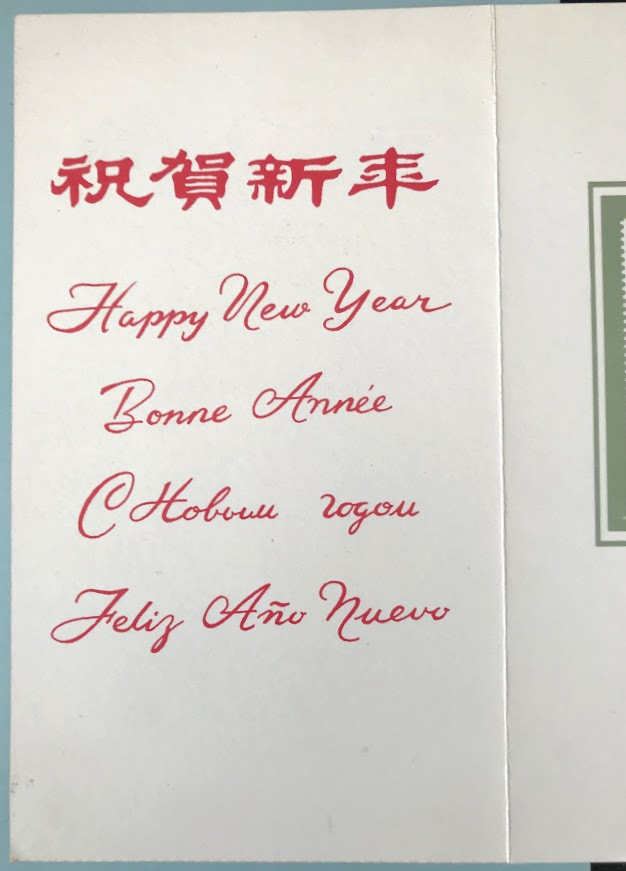 祝賀新年
Happy New Year
Bonne Année
С Новым годом
Feliz Año Nuevo